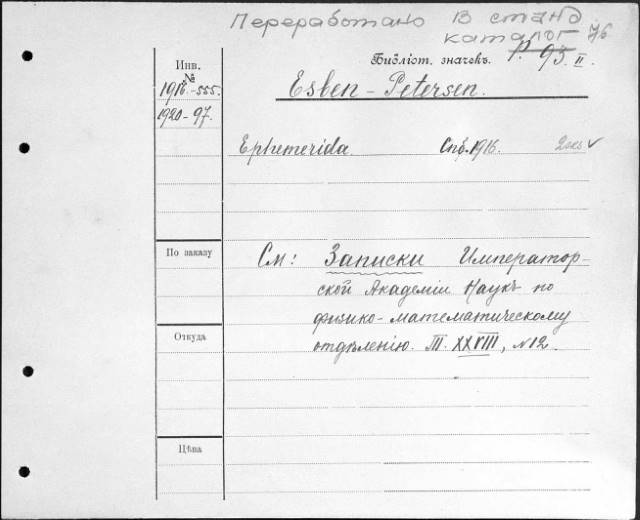 Переработано в станд
каталог 76
Инв.
№
Библіот. значекъ. P. 95. II.
1916.-555.
Esben-Petersen.
1920-97.
Ephemerida. Спб. 1916. 2 экз. ✓
По заказу
См: Записки Император-
ской Академіи Наукъ по
физико-математическому
Откуда
отдѣленію. Т. XXVIII, №12.
Цѣна